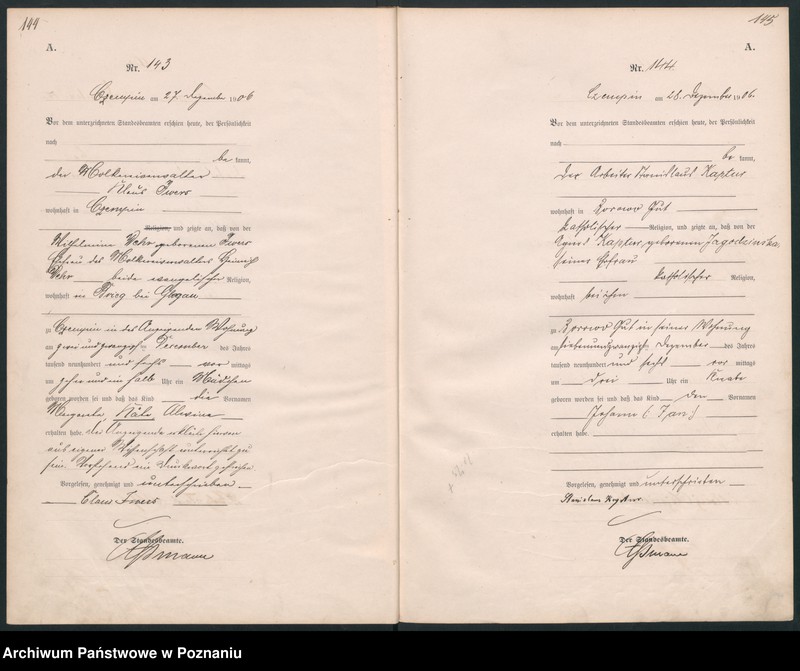 144
A.
Nr. 143
Czempin am 27. Dezember 1906
Vor dem unterzeichneten Standesbeamten erschien heute, der Persönlichkeit
nach
be kannt,
der Molkereiverwalter
Klaus Ivers
wohnhaft in Czempin
Religion, und zeigte an, daß von der
Wilhelmine Behr geborenen Ivers
Ehefrau des Molkereiverwalters Heinrich
Behr beide evangelischer Religion,
wohnhaft in Brieg bei Glogau
zu Czempin in des Anzeigenden Wohnung
am zwei und zwanzigsten Dezember des Jahres
tausend neunhundert und sechs vor mittags
um zehn und ein halb Uhr ein Mädchen
geboren worden sei und daß das Kind die Vornamen
Käte Alwine
erhalten habe. Der Anzeigende erklärte hiervon
aus eigener Wissenschaft unterrichtet zu
sein. Vorstehend ein Druckwort gestrichen.
Vorgelesen, genehmigt und unterschrieben
Claus Ivers
Der Standesbeamte.
Aßmann
145
A.
Nr. 144
Czempin am 28. Dezember 1906
Vor dem unterzeichneten Standesbeamten erschien heute, der Persönlichkeit
nach
be kannt,
der Arbeiter Stanislaus Kaptur
wohnhaft in Gut
katholischer Religion, und zeigte an, daß von der
Agnes Kaptur, geborenen Jagodzinska
seiner Ehefrau
katholischer Religion,
wohnhaft bei ihm
zu Gut in seiner Wohnung
am siebenundzwanzigsten Dezember des Jahres
tausend neunhundert und sechs vor mittags
um drei Uhr ein Knabe
geboren worden sei und daß das Kind den Vornamen
Johann (Jan)
erhalten habe.
Vorgelesen, genehmigt und unterschrieben
Der Standesbeamte.
Aßmann
Archiwum Państwowe w Poznaniu